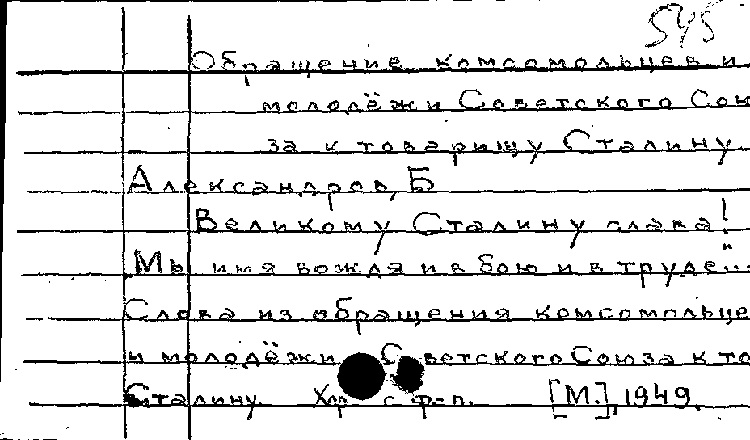 545
Обращение комсомольцев и
молодёжи Советского Сою
за к товарищу Сталину.
Александров, Б
Великому Сталину слава!
Мы имя вождя и в бою и в труде..."
Слова из обращения комсомольце
и молодёжи Советского Союза к то
Сталину. Хор с ф-п. [М.], 1949.